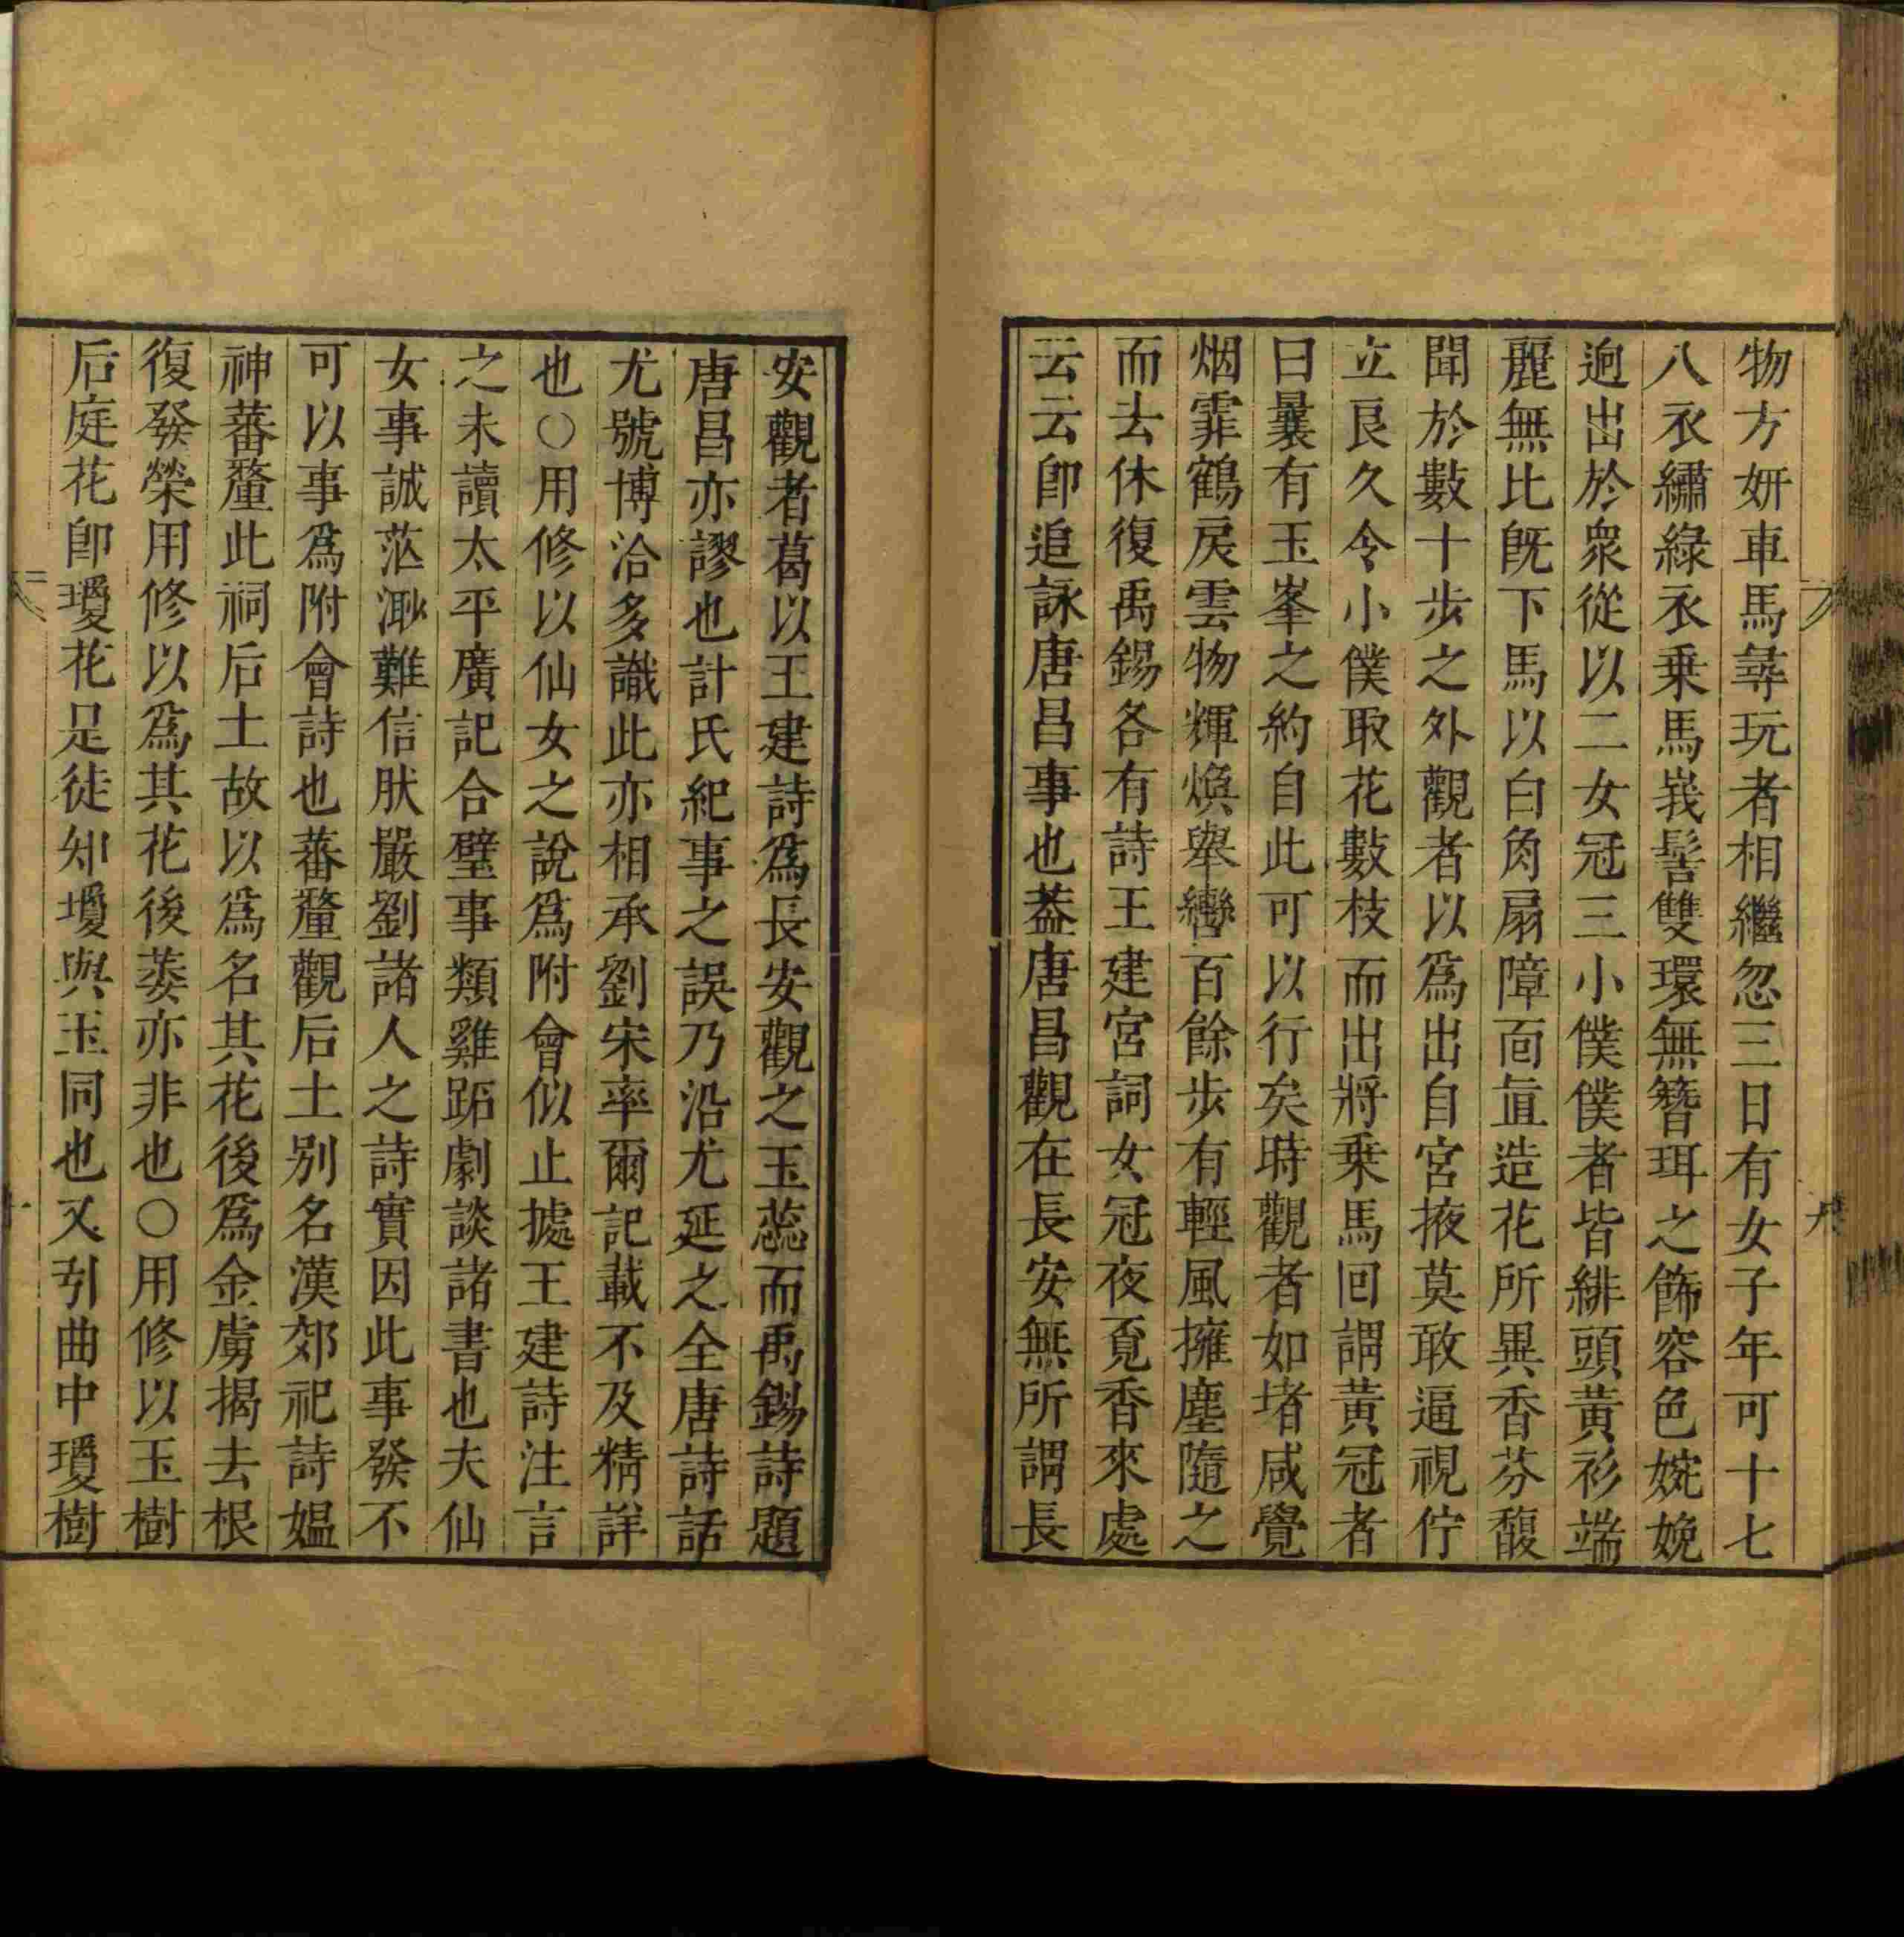 物方妍車馬尋玩者相繼忽三日有女子年可十七
八衣繡綠衣乗馬峩髻雙環無簪珥之飾容色婉娩
逈出於衆從以二女冠三小僕僕者皆緋頭黃衫端
麗無比旣下馬以白角扇障面直造花所異香芬馥
聞於數十步之外觀者以爲出自宮掖莫敢逼視佇
立良久令小僕取花數枝而出將乗馬回謂黃冠者
曰曩有玉峯之約自此可以行矣時觀者如堵咸覺
烟霏鶴戾雲物輝煥舉轡百餘步有輕風擁塵隨之
而去休復禹錫各有詩王建宮詞女冠夜覓香來處
云云卽追詠唐昌事也葢唐昌觀在長安無所謂長
安觀者葛以王建詩爲長安觀之玉蕊而禹錫詩題
唐昌亦謬也計氏紀事之誤乃沿尤延之全唐詩話
尤號博洽多識此亦相承劉宋率爾記載不及精詳
也○用修以仙女之說爲附會似止據王建詩注言
之未讀太平廣記合璧事類雞跖劇談諸書也夫仙
女事誠茫渺難信肰嚴劉諸人之詩實因此事發不
可以事爲附會詩也蕃釐觀后土别名漢郊祀詩媼
神蕃釐此祠后土故以爲名其花後爲金虜揭去根
復發榮用修以爲其花後萎亦非也○用修以玉樹
后庭花卽瓊花足徒知瓊與玉同也又引曲中瓊樹